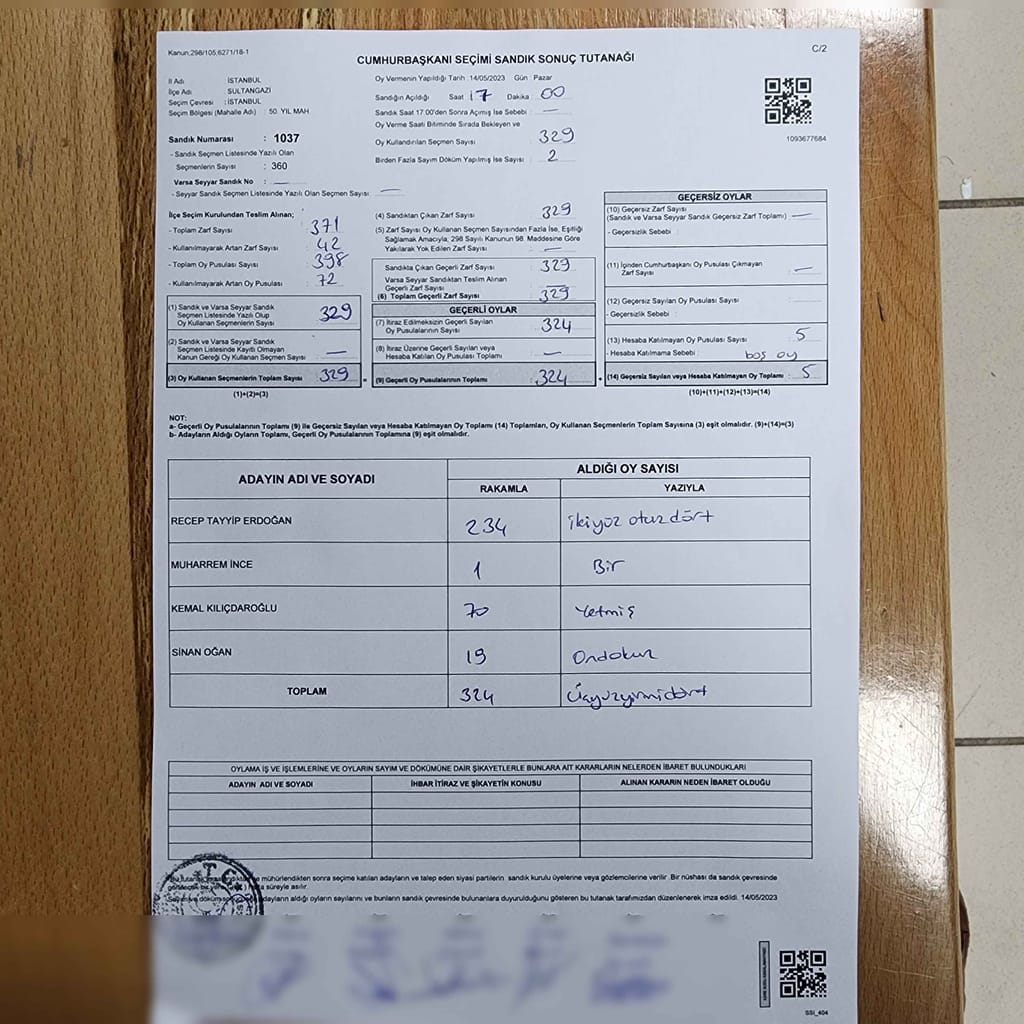 Kanun,298/105,6271/18-1
C/2
CUMHURBAŞKANI SEÇİMİ SANDIK SONUÇ TUTANAĞI
İl Adı : İSTANBUL
İlçe Adı : SULTANGAZİ
Seçim Çevresi : İSTANBUL
Seçim Bölgesi (Mahalle Adı) : 50. YIL MAH
Sandık Numarası : 1037
- Sandık Seçmen Listesinde Yazılı Olan
Seçmenlerin Sayısı : 360
Varsa Seyyar Sandık No : —
- Seyyar Sandık Seçmen Listesinde Yazılı Olan Seçmen Sayısı : —
Oy Vermenin Yapıldığı Tarih :14/05/2023 Gün : Pazar
Sandığın Açıldığı Saat 17 Dakika 00
Sandık Saat 17:00'den Sonra Açmış İse Sebebi : —
Oy Verme Saati Bitiminde Sırada Bekleyen ve
Oy Kullandırılan Seçmen Sayısı : 329
Birden Fazla Sayım Döküm Yapılmış İse Sayısı : 2
1093677684
İlçe Seçim Kurulundan Teslim Alınan;
- Toplam Zarf Sayısı : 371
- Kullanılmayarak Artan Zarf Sayısı : 42
- Toplam Oy Pusulası Sayısı : 398
- Kullanılmayarak Artan Oy Pusulası : 72
(1) Sandık ve Varsa Seyyar Sandık
Seçmen Listesinde Yazılı Olup
Oy Kullanan Seçmenlerin Sayısı : 329
(2) Sandık ve Varsa Seyyar Sandık
Seçmen Listesinde Kayıtlı Olmayan
Kanun Gereği Oy Kullanan Seçmen Sayısı : —
(3) Oy Kullanan Seçmenlerin Toplam Sayısı : 329
(1)+(2)=(3)
(4) Sandıktan Çıkan Zarf Sayısı : 329
(5) Zarf Sayısı Oy Kullanan Seçmen Sayısından Fazla İse, Eşitliği
Sağlamak Amacıyla, 298 Sayılı Kanunun 98. Maddesine Göre
Yakılarak Yok Edilen Zarf Sayısı : —
Sandıkta Çıkan Geçerli Zarf Sayısı : 329
Varsa Seyyar Sandıktan Teslim Alınan
Geçerli Zarf Sayısı : —
(6) Toplam Geçerli Zarf Sayısı : 329
GEÇERLİ OYLAR
(7) İtiraz Edilmeksizin Geçerli Sayılan
Oy Pusulalarının Sayısı : 324
(8) İtiraz Üzerine Geçerli Sayılan veya
Hesaba Katılan Oy Pusulası Toplamı : —
(9) Geçerli Oy Pusulalarının Toplamı : 324
GEÇERSİZ OYLAR
(10) Geçersiz Zarf Sayısı
(Sandık ve Varsa Seyyar Sandık Geçersiz Zarf Toplamı) : —
- Geçersizlik Sebebi :
(11) İçinden Cumhurbaşkanı Oy Pusulası Çıkmayan
Zarf Sayısı : —
(12) Geçersiz Sayılan Oy Pusulası Sayısı :
- Geçersizlik Sebebi :
(13) Hesaba Katılmayan Oy Pusulası Sayısı : 5
- Hesaba Katılmama Sebebi : boş oy
(14) Geçersiz Sayılan veya Hesaba Katılmayan Oy Toplamı : 5
(10)+(11)+(12)+(13)=(14)
NOT:
a- Geçerli Oy Pusulalarının Toplamı (9) ile Geçersiz Sayılan veya Hesaba Katılmayan Oy Toplamı (14) Toplamları, Oy Kullanan Seçmenlerin Toplam Sayısına (3) eşit olmalıdır. (9)+(14)=(3)
b- Adayların Aldığı Oyların Toplamı, Geçerli Oy Pusulalarının Toplamına (9) eşit olmalıdır.
ADAYIN ADI VE SOYADI
ALDIĞI OY SAYISI
RAKAMLA YAZIYLA
RECEP TAYYİP ERDOĞAN 234 ikiyüz otuzdört
MUHARREM İNCE 1 Bir
KEMAL KILIÇDAROĞLU 70 Yetmiş
SİNAN OĞAN 19 Ondokuz
TOPLAM 324 Üçyüzyirmidört
OYLAMA İŞ VE İŞLEMLERİNE VE OYLARIN SAYIM VE DÖKÜMÜNE DAİR ŞİKAYETLERLE BUNLARA AİT KARARLARIN NELERDEN İBARET BULUNDUKLARI
ADAYIN ADI VE SOYADI İHBAR İTİRAZ VE ŞİKAYETİN KONUSU ALINAN KARARIN NEDEN İBARET OLDUĞU
T.C.
mühürlendikten sonra seçime katılan adayların ve talep eden siyasi partilerin sandık kurulu üyelerine veya gözlemcilerine verilir. Bir nüshası da sandık çevresinde
süreyle asılır.
adayların aldığı oyların sayılarını ve bunların sandık çevresinde bulunanlara duyurulduğunu gösteren bu tutanak tarafımızdan düzenlenerek imza edildi. 14/05/2023
SSI_404